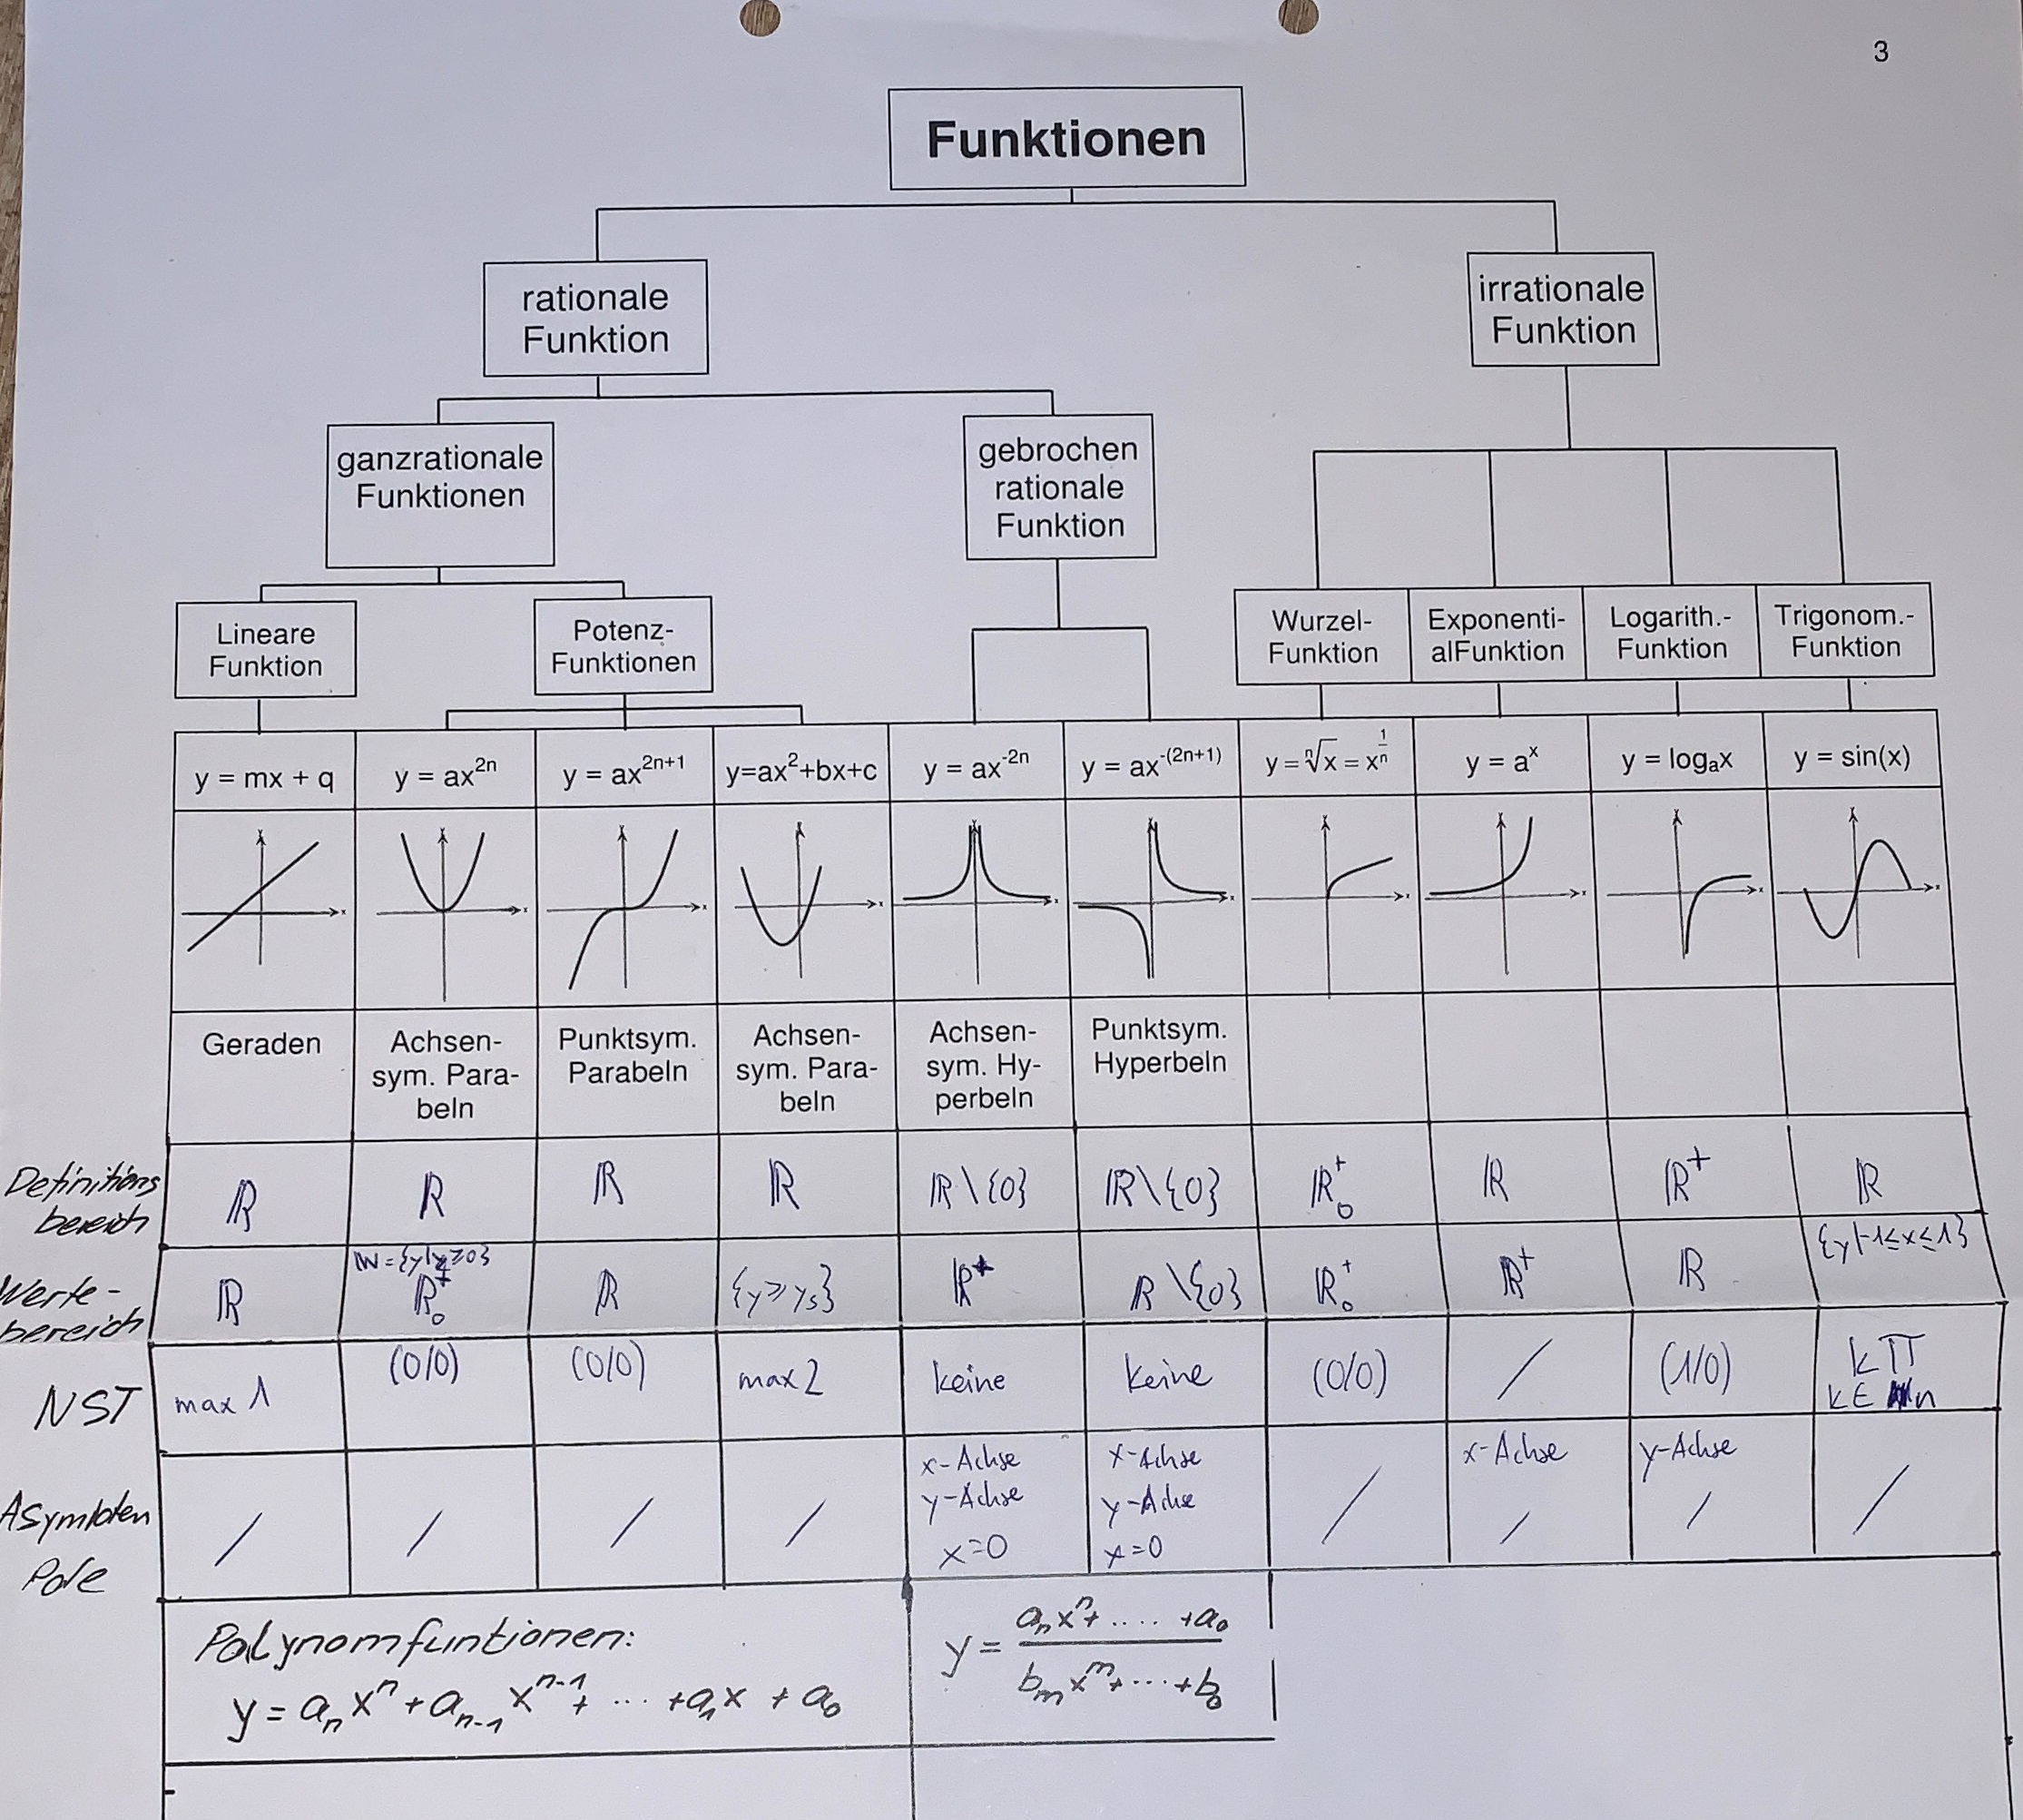 3
Funktionen
rationale
Funktion
irrationale
Funktion
ganzrationale
Funktionen
gebrochen
rationale
Funktion
Lineare
Funktion
Potenz-
Funktionen
Wurzel-
Funktion
Exponenti-
alFunktion
Logarith.-
Funktion
Trigonom.-
Funktion
y = mx + q
y = ax^2n
y = ax^2n+1
y=ax²+bx+c
y = ax^-2n
y = ax^-(2n+1)
y = ⁿ√x = x^1/n
y = a^x
y = logₐx
y = sin(x)
Geraden
Achsen-
sym. Para-
beln
Punktsym.
Parabeln
Achsen-
sym. Para-
beln
Achsen-
sym. Hy-
perbeln
Punktsym.
Hyperbeln
Definitions
bereich
ℝ
ℝ
ℝ
ℝ
ℝ\{0}
ℝ\{0}
ℝ₀⁺
ℝ
ℝ⁺
ℝ
Werte-
bereich
ℝ
ℝ₀⁺
ℝ
{y≥ys}
ℝ⁺
ℝ\{0}
ℝ₀⁺
ℝ⁺
ℝ
{y|-1≤x≤1}
NST
max 1
(0/0)
(0/0)
max 2
keine
keine
(0/0)
/
(1/0)
kπ
k∈
Asymptoten
Pole
/
/
/
/
x-Achse
y-Achse
x=0
x-Achse
y-Achse
x=0
/
x-Achse
/
y-Achse
/
/
Polynomfuntionen:
y = aₙxⁿ + aₙ₋₁xⁿ⁻¹ + ... + a₁x + a₀
y = (aₙxⁿ + .... + a₀) / (bₘxᵐ + ... + b₀)